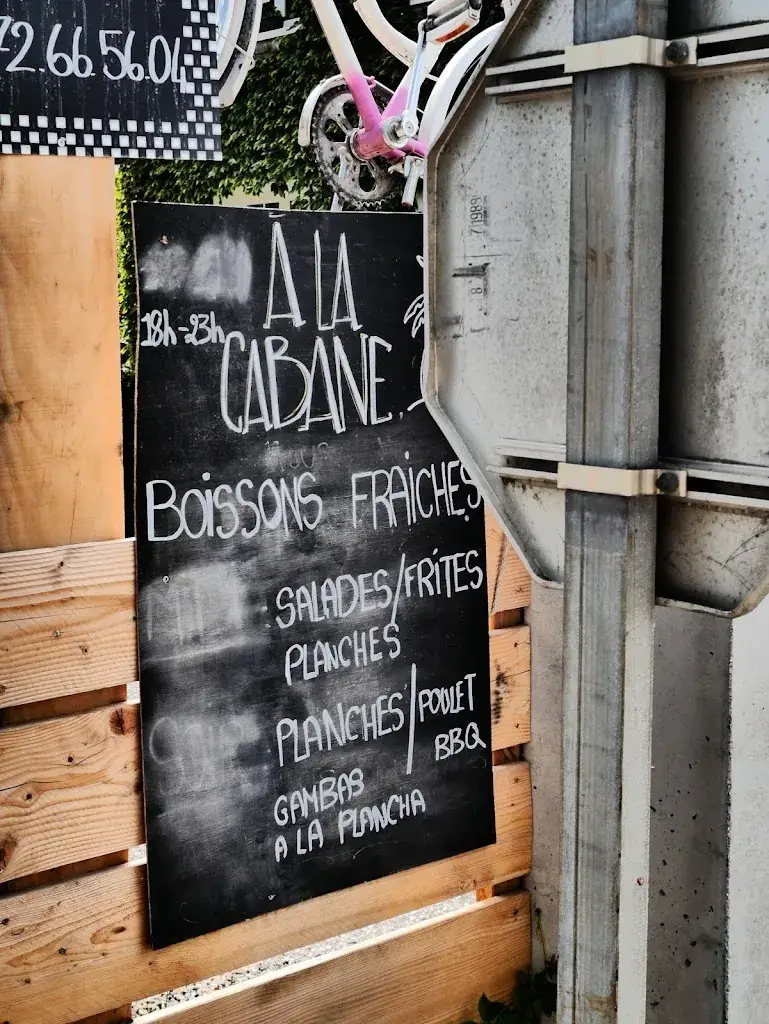 72.66.56.04
À LA
18h-23h
CABANE
BOISSONS FRAICHES
SALADES/FRITES
PLANCHES
PLANCHES/POULET
BBQ
GAMBAS
A LA PLANCHA
7 1989
8